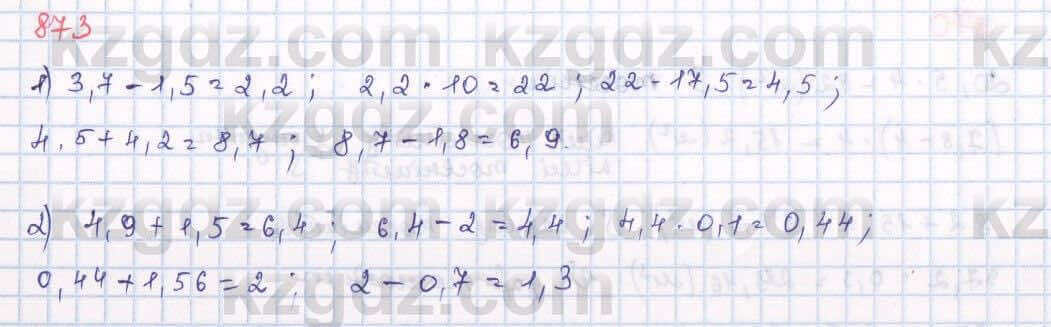 873
1) 3,7 - 1,5 = 2,2 ; 2,2 · 10 = 22 ; 22 - 17,5 = 4,5 ;
4.5 + 4,2 = 8,7 ; 8,7 - 1,8 = 6,9.
2) 4,9 + 1,5 = 6,4 ; 6,4 - 2 = 4,4 ; 4,4 · 0,1 = 0,44 ;
0,44 + 1,56 = 2 ; 2 - 0,7 = 1,3
kzgdz.com